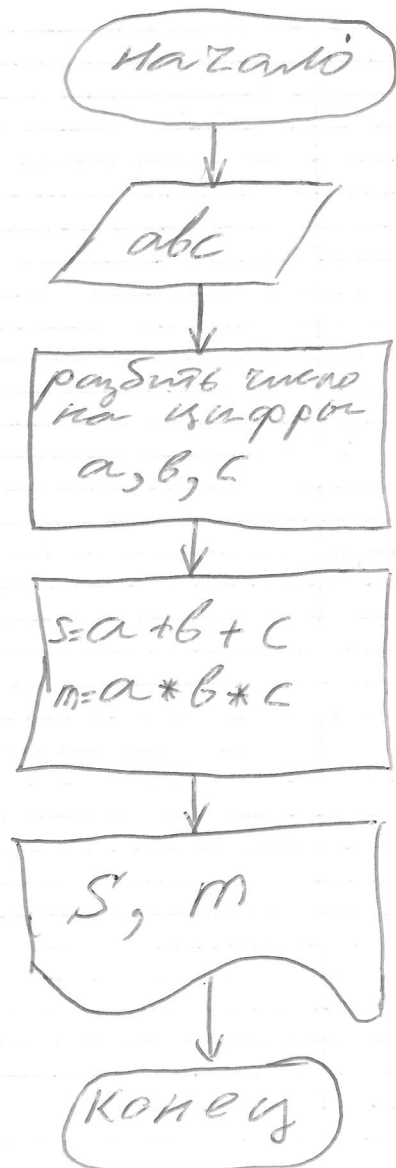 начало
abc
разбить число
на цифры
a, b, c
s=a+b+c
m=a*b*c
S, m
конец